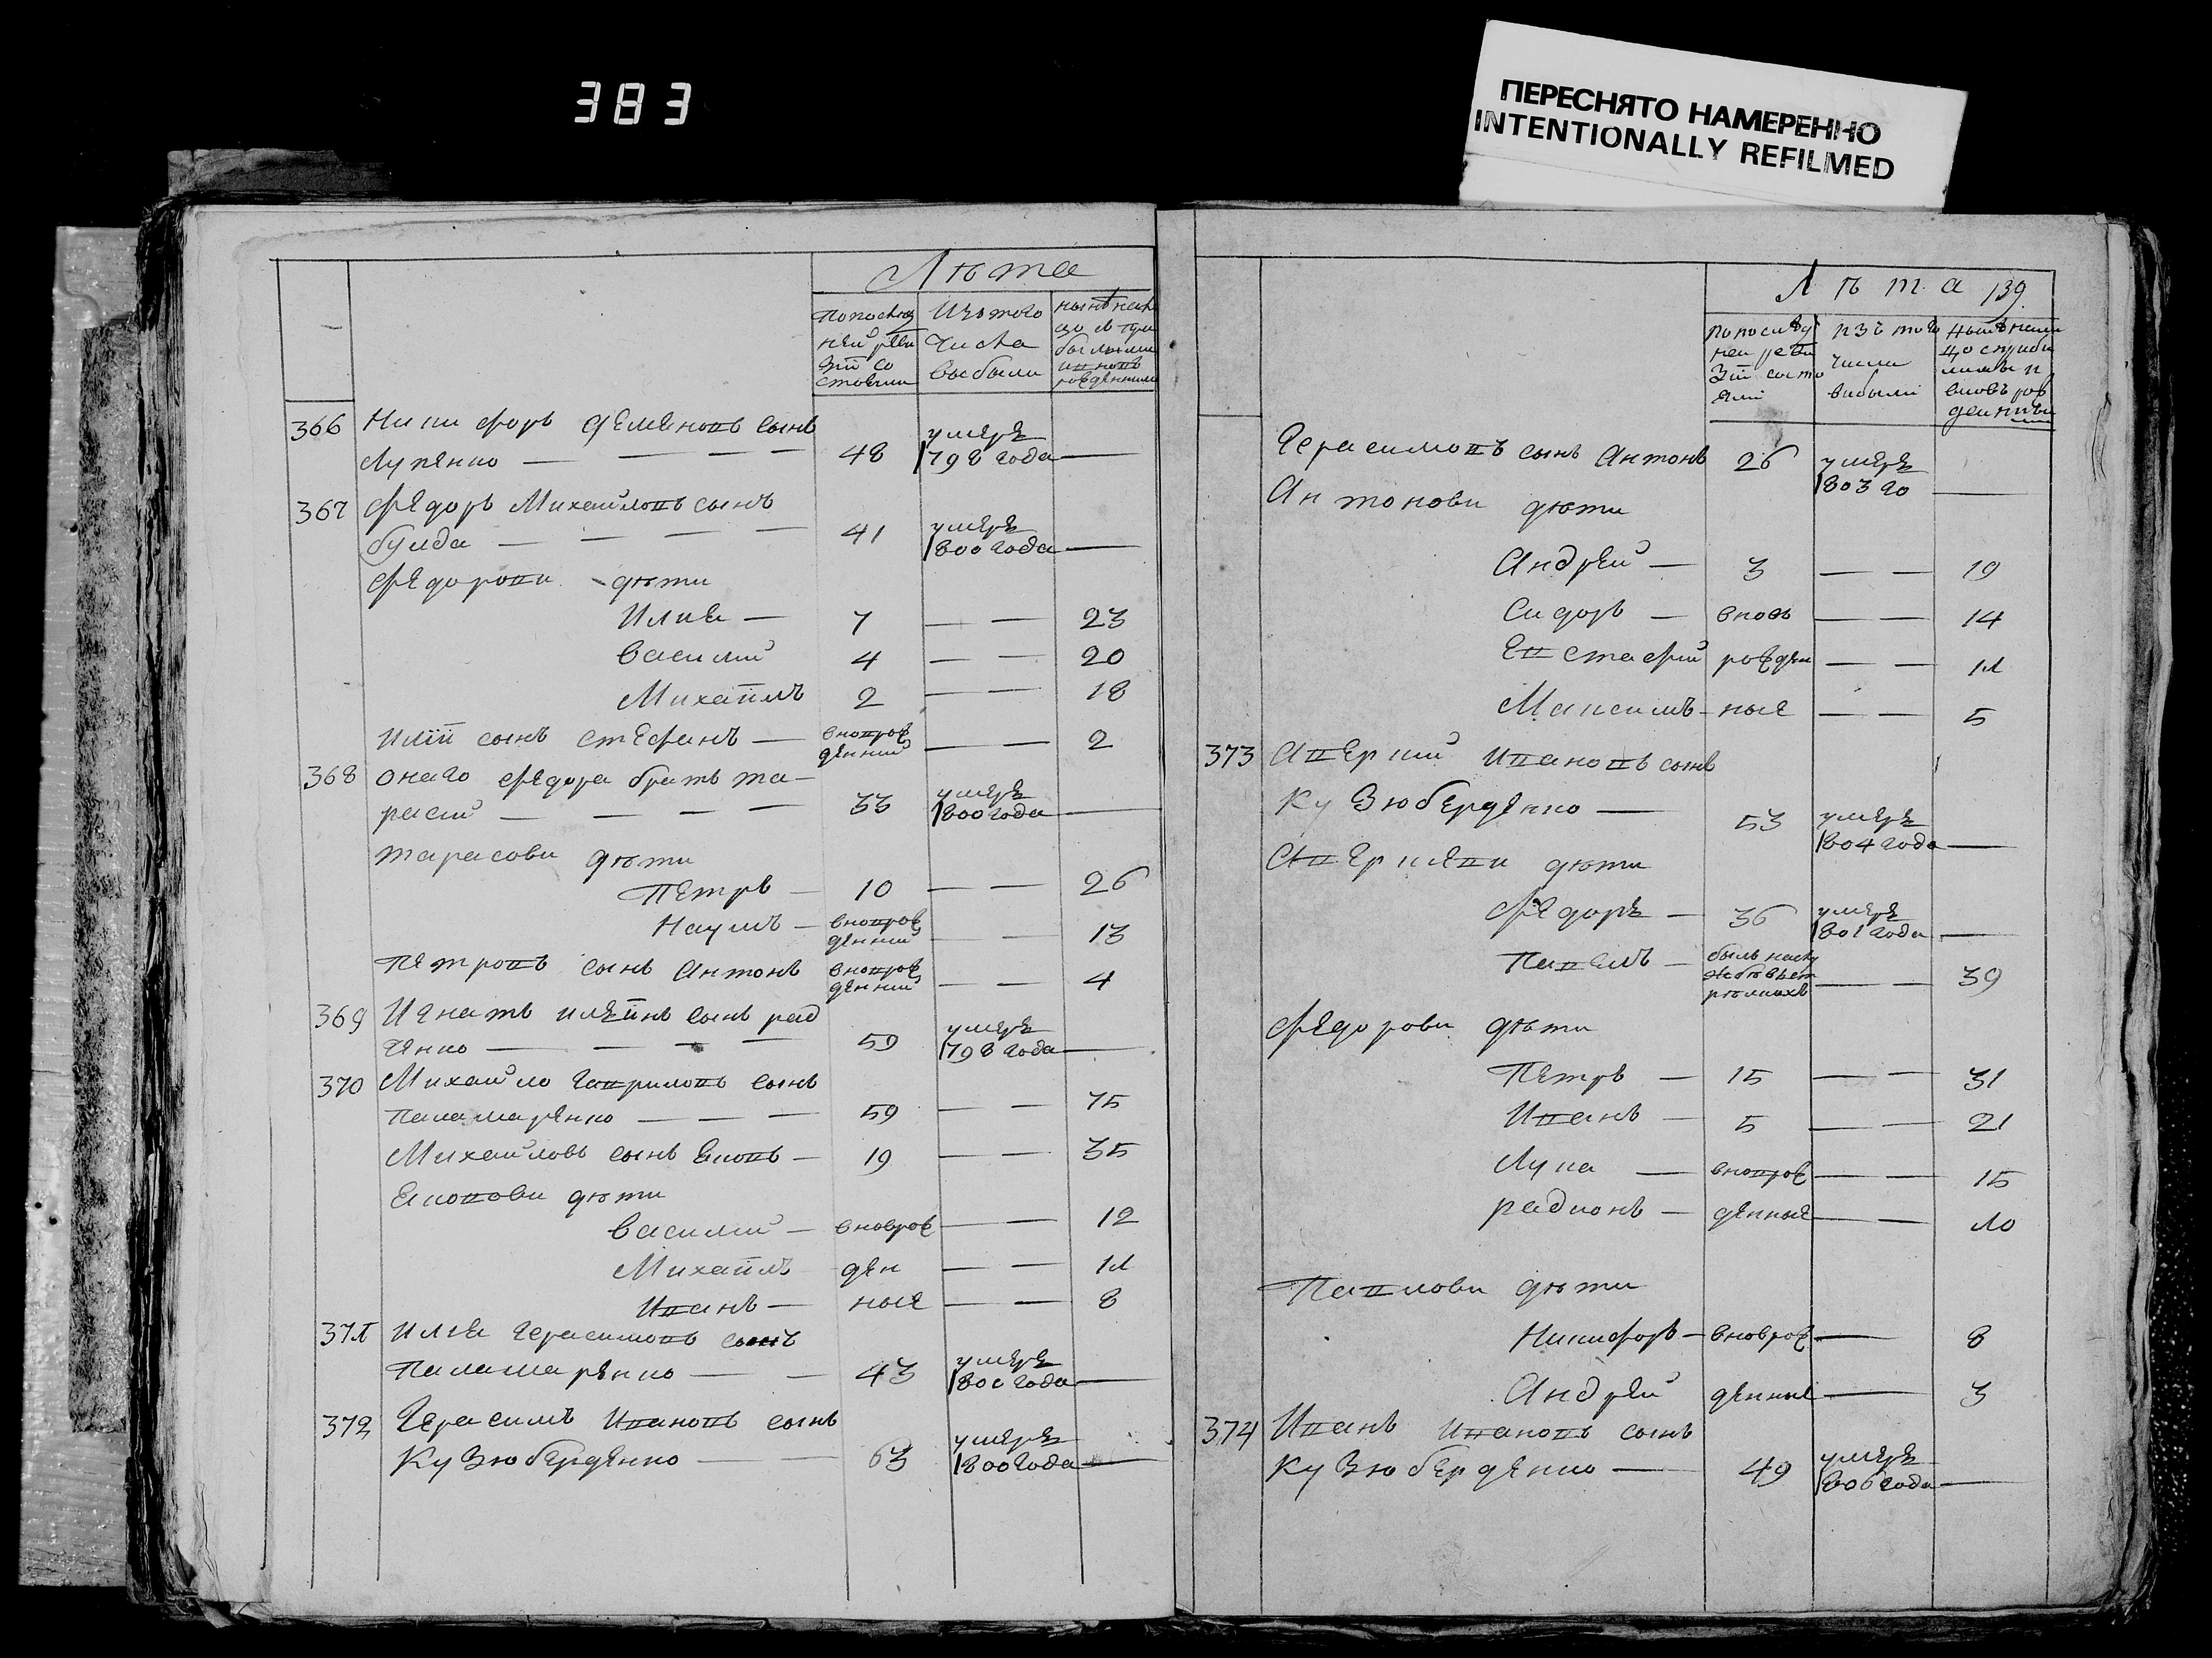 383
ПЕРЕСНЯТО НАМЕРЕННО
INTENTIONALLY REFILMED
Лѣта
По последней ревизіи состояли
Изъ того числа выбыли
366 Никифоръ Деменовъ сынъ
Лупенко — — — — 48 умере 1798 года —
367 Федоръ Михайловъ сынъ
булда — — — — 41 умере 1800 года —
Федорови дѣти
Илия — 7 — — 23
Василий 4 — — 20
Михаилъ 2 — — 18
Иліи сынъ Стефанъ — вновроженний — — 2
368 Онаго Федора братъ Та-
расий — — — — 33 умере 1800 года —
Тарасови дѣти
Петръ — 10 — — 26
Наумъ — вновроженний — — 13
Петровъ сынъ Антонъ вновроженний — — 4
369 Игнатъ сынъ рад
ченко — — — — 59 умере 1798 года —
370 Михайло Гавриловъ сынъ
Паламаренко — — — 59 — — 75
Михайловъ сынъ Яковъ — 19 — — 35
Яковови дѣти
Василий — вноврож — — 12
Михаилъ ден — — 11
Иванъ — ные — — 8
371 Илия Герасимовъ сынъ
Паламаренко — — 43 умере 180 года —
372 Герасимъ Ивановъ сынъ
Кузюберденко — — 63 умере 1800 года —
Лѣта 139
По последней ревизіи состояли
изъ того числа выбыли
Герасимовъ сынъ Антонъ 26 умере 1803 го —
Антонови дѣти
Андрей — 3 — — 19
Сидоръ — вновь — — 14
Евстафий рожден — — 11
Максимъ — ные — — 5
373 Аверкий Ивановъ сынъ
Кузюберденко — 53 умере 1804 года —
Аверкиеви дѣти
Федоръ — 36 умере 1801 года —
Павелъ — былъ — — 39
Федорови дѣти
Петръ — 15 — — 31
Иванъ — 5 — — 21
Лука — вноврож — — 15
радионъ — денные — — 10
Павлови дѣти
Никифоръ — вноврож — 8
Андрей денные — 3
374 Иванъ Ивановъ сынъ
Кузюберденко — 49 умере 1806 года —